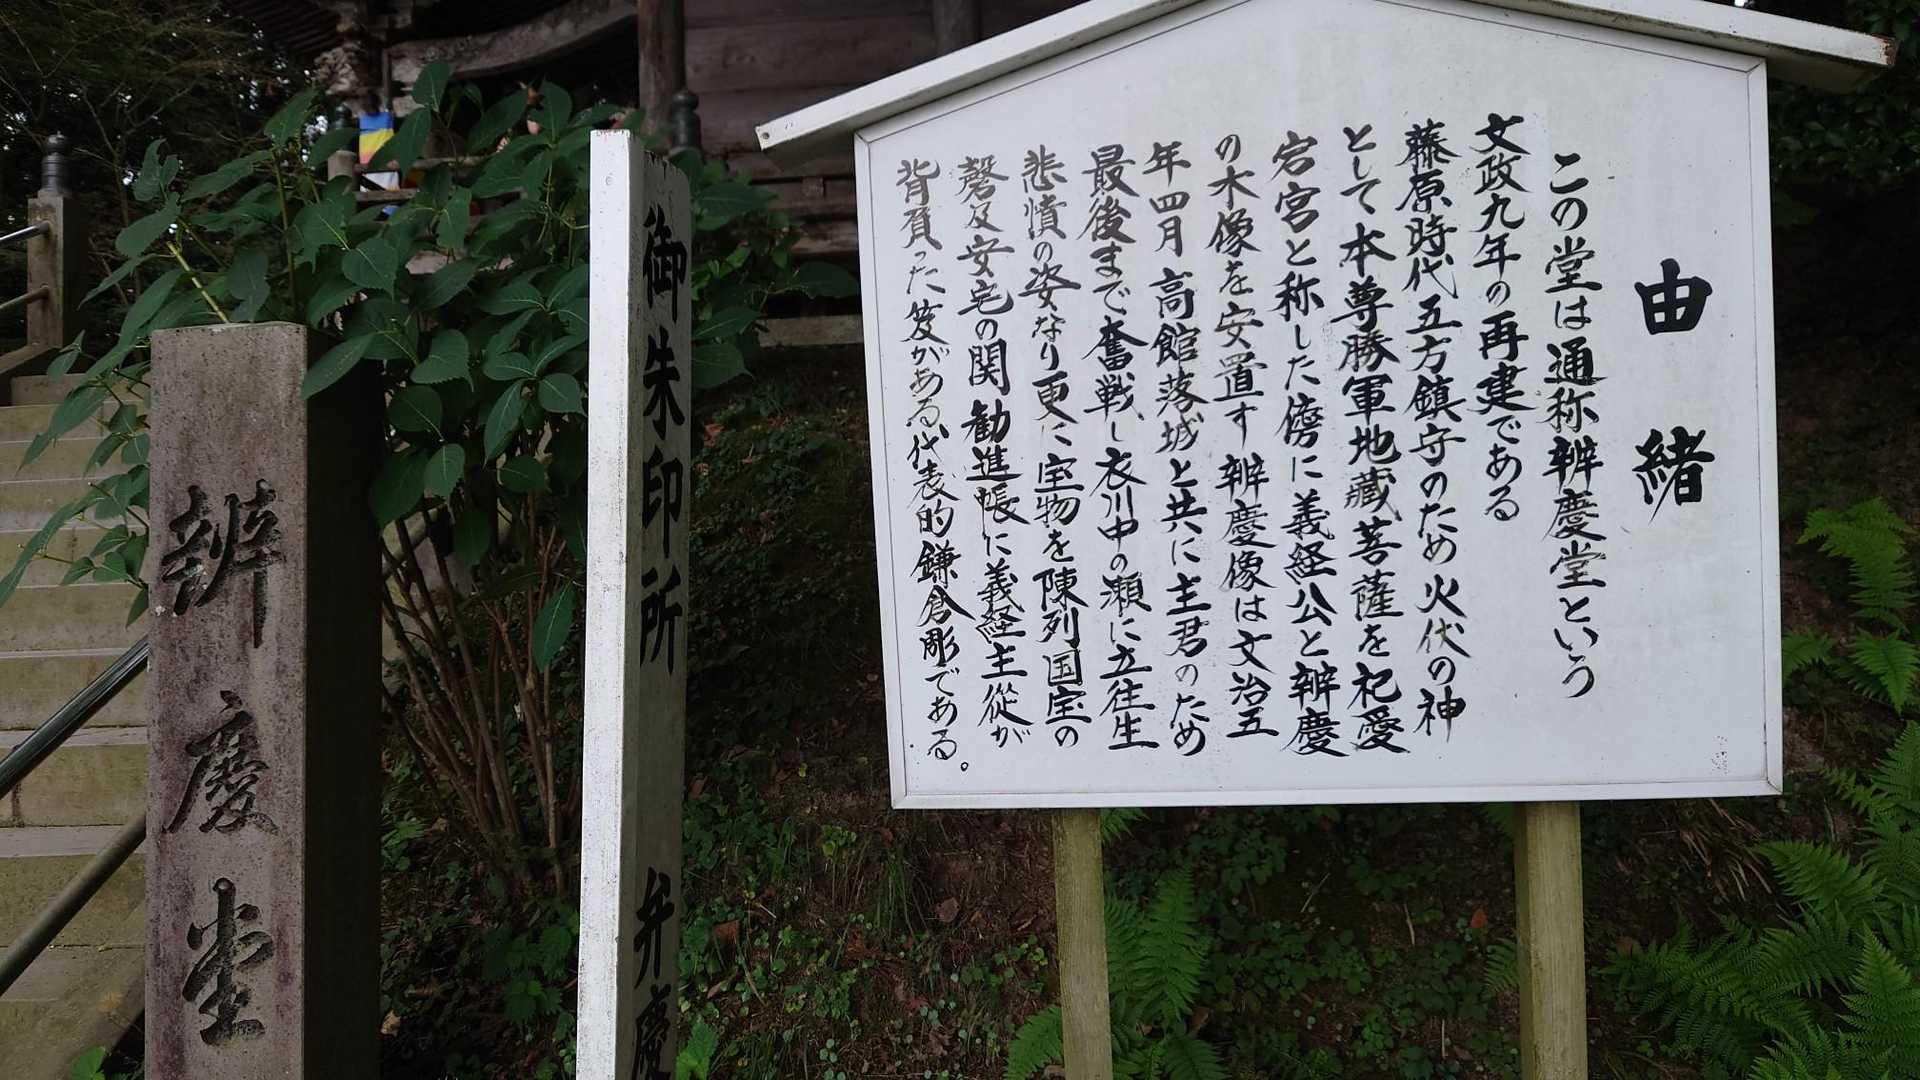 由緒
この堂は通称辨慶堂という
文政九年の再建である
藤原時代五方鎮守のため火伏の神
として本尊勝軍地蔵菩薩を祀愛
宕宮と称した傍に義経公と辨慶
の木像を安置す辨慶像は文治五
年四月高館落城と共に主君のため
最後まで奮戦し衣川中の瀬に立往生
悲憤の姿なり更に宝物を陳列国宝の
磬及安宅の関勧進帳に義経主従が
背負った笈がある代表的鎌倉彫である。
御朱印所 弁慶
辨慶堂